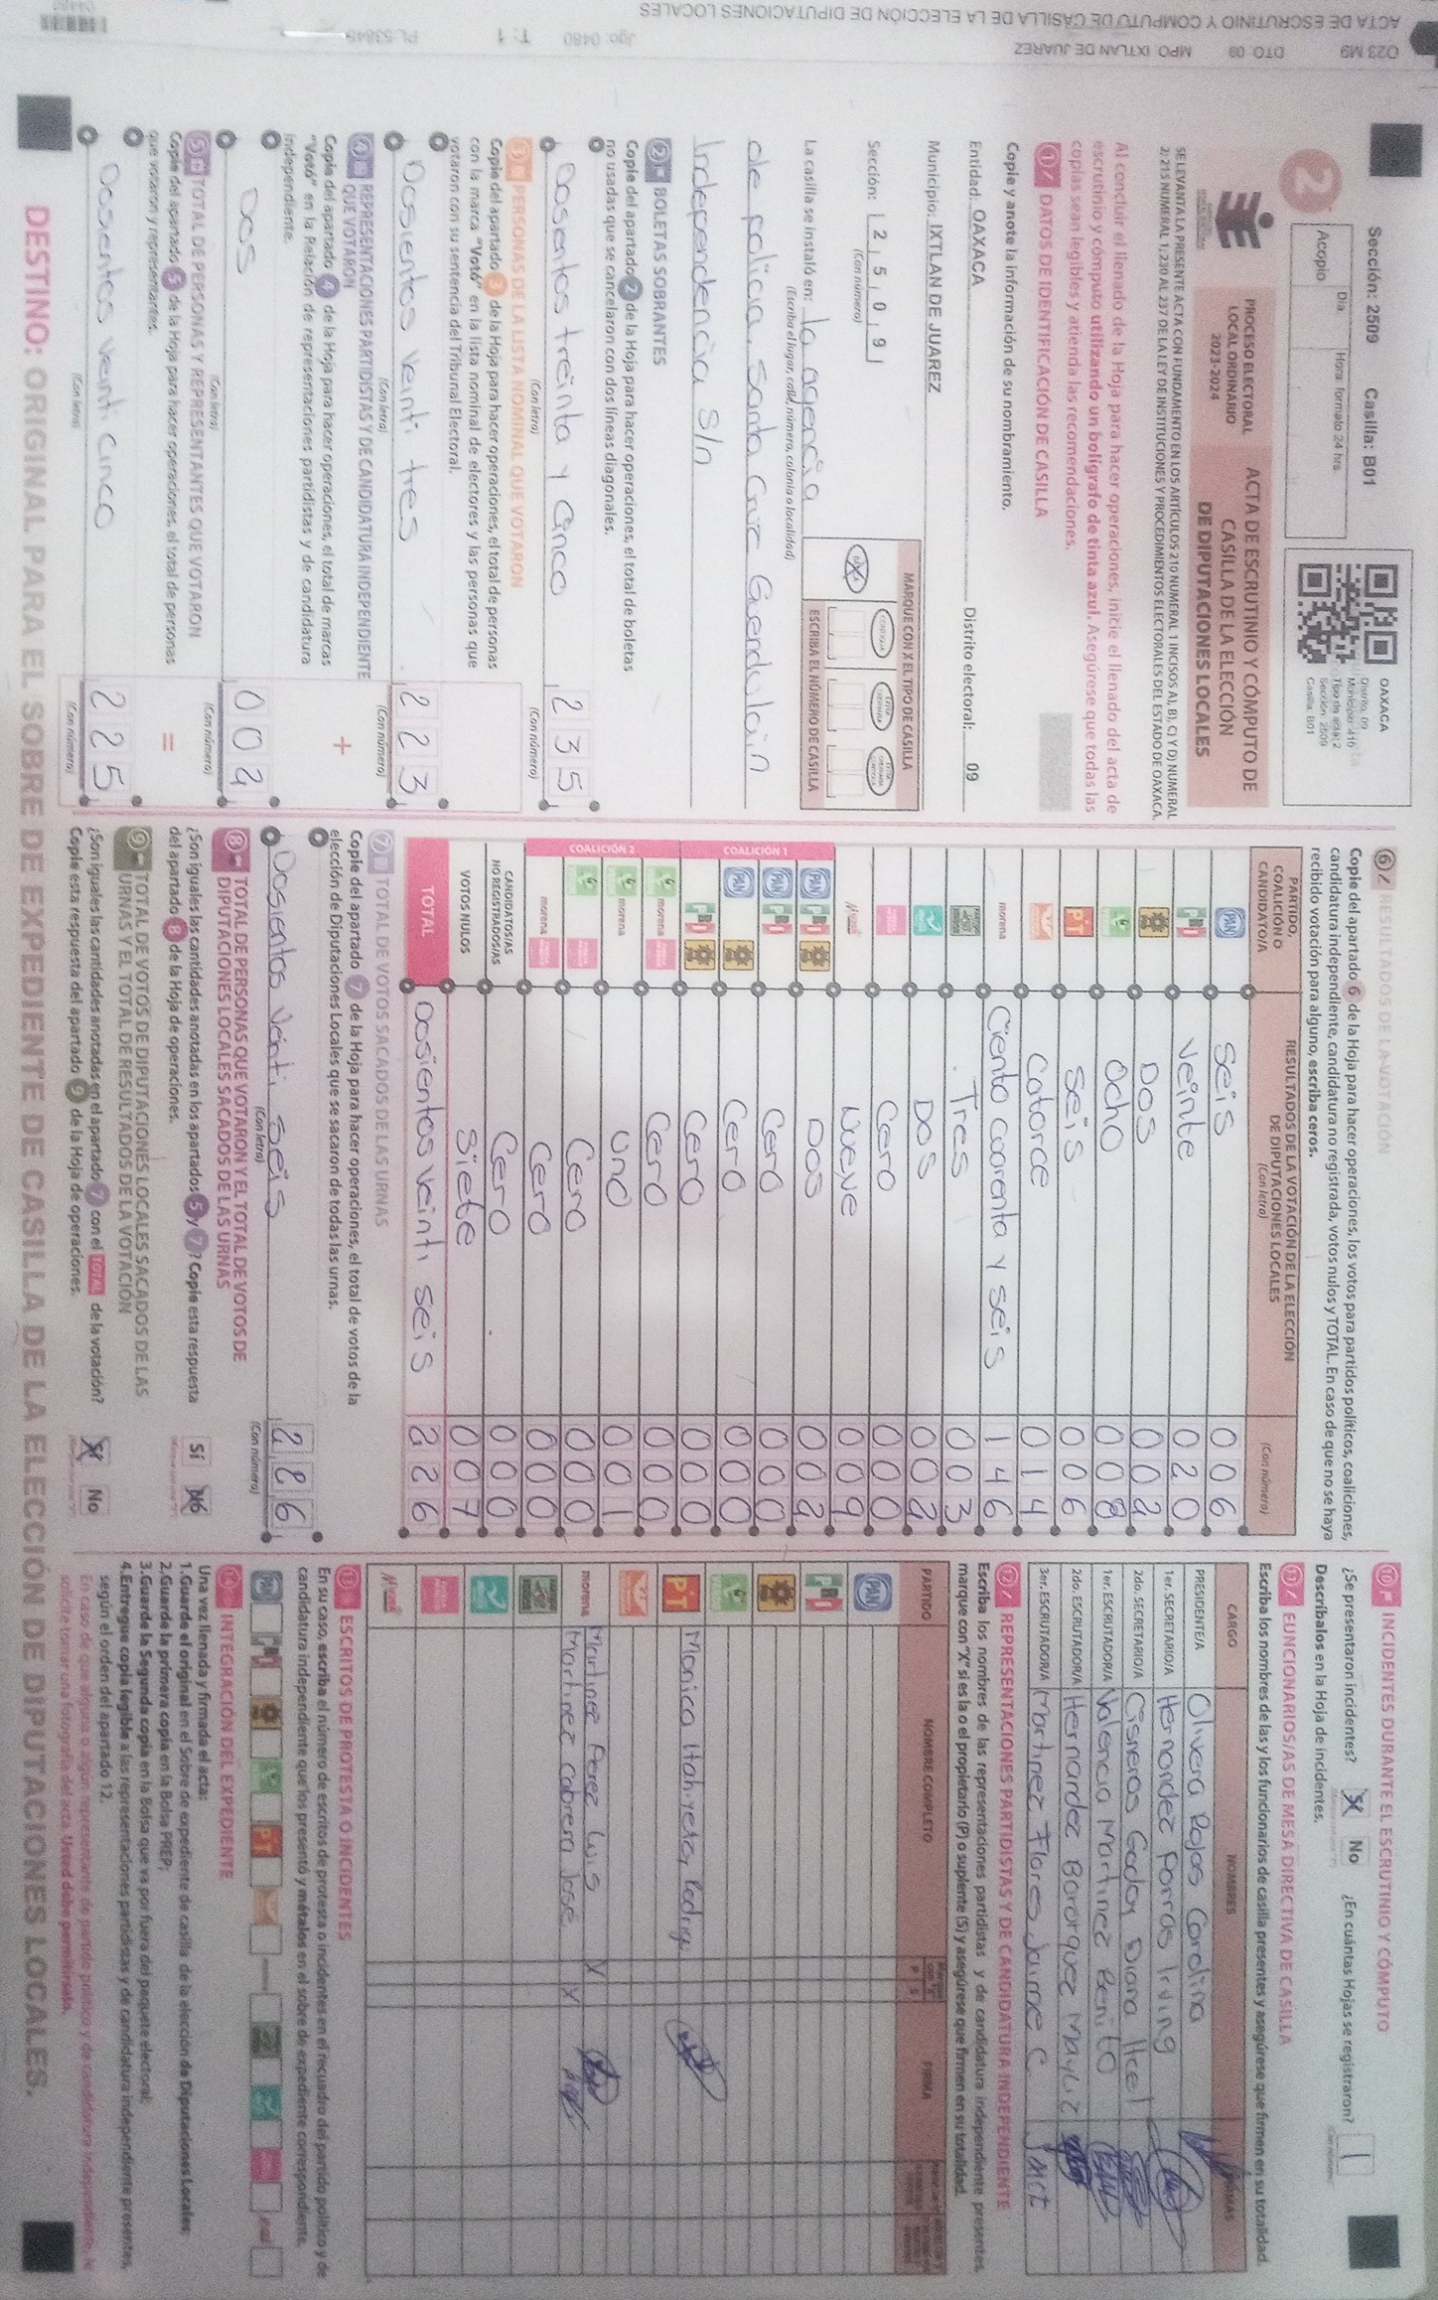 O23 M9 DTO 09 MPO IXTLAN DE JUAREZ Jgo: 0480 T: 1
ACTA DE ESCRUTINIO Y COMPUTO DE CASILLA DE LA ELECCIÓN DE DIPUTACIONES LOCALES
Sección: 2509 Casilla: B01
Día Hora: formato 24 hrs
Acopio
OAXACA
Distrito: 09
Sección: 2509
Casilla: B01
2
PROCESO ELECTORAL
LOCAL ORDINARIO
2023-2024
ACTA DE ESCRUTINIO Y CÓMPUTO DE
CASILLA DE LA ELECCIÓN
DE DIPUTACIONES LOCALES
SE LEVANTA LA PRESENTE ACTA CON FUNDAMENTO EN LOS ARTÍCULOS 210 NUMERAL 1 INCISOS A), B), C) Y D) NUMERAL
2; 215 NUMERAL 1; 230 AL 237 DE LA LEY DE INSTITUCIONES Y PROCEDIMIENTOS ELECTORALES DEL ESTADO DE OAXACA.
Al concluir el llenado de la Hoja para hacer operaciones, inicie el llenado del acta de
escrutinio y cómputo utilizando un bolígrafo de tinta azul. Asegúrese que todas las
copias sean legibles y atienda las recomendaciones.
1 DATOS DE IDENTIFICACIÓN DE CASILLA
Copie y anote la información de su nombramiento.
Entidad: OAXACA Distrito electoral: 09
Municipio: IXTLAN DE JUAREZ
Sección: 2 5 0 9
(Con número)
MARQUE CON X EL TIPO DE CASILLA
ESCRIBA EL NÚMERO DE CASILLA
La casilla se instaló en: la agencia
(Escriba el lugar, calle, número, colonia o localidad)
de policia, santa Cruz Guendulain
Independencia S/n
2 BOLETAS SOBRANTES
Copie del apartado 2 de la Hoja para hacer operaciones, el total de boletas
no usadas que se cancelaron con dos líneas diagonales.
Dosientos treinta y Cinco 235
(Con letra) (Con número)
3 PERSONAS DE LA LISTA NOMINAL QUE VOTARON
Copie del apartado 3 de la Hoja para hacer operaciones, el total de personas
con la marca "Votó" en la lista nominal de electores y las personas que
votaron con su sentencia del Tribunal Electoral.
Dosientos veinti tres 223
(Con letra) (Con número)
4 REPRESENTACIONES PARTIDISTAS Y DE CANDIDATURA INDEPENDIENTE
QUE VOTARON
Copie del apartado 4 de la Hoja para hacer operaciones, el total de marcas
"Votó" en la Relación de representaciones partidistas y de candidatura
independiente.
+
Dos 002
(Con letra) (Con número)
5 TOTAL DE PERSONAS Y REPRESENTANTES QUE VOTARON
Copie del apartado 5 de la Hoja para hacer operaciones, el total de personas
que votaron y representantes.
=
Dosientos veinti Cinco 225
(Con letra) (Con número)
6 RESULTADOS DE LA VOTACIÓN
Copie del apartado 6 de la Hoja para hacer operaciones, los votos para partidos políticos, coaliciones,
candidatura independiente, candidatura no registrada, votos nulos y TOTAL. En caso de que no se haya
recibido votación para alguno, escriba ceros.
PARTIDO,
COALICIÓN O
CANDIDATO/A
RESULTADOS DE LA VOTACIÓN DE LA ELECCIÓN
DE DIPUTACIONES LOCALES
(Con letra) (Con número)
PAN Seis 006
PRI Veinte 020
Dos 002
Ocho 008
PT Seis 006
Catorce 014
morena Ciento Coarenta y seis 146
Tres 003
Dos 002
Cero 000
Nueve 009
COALICIÓN 1
PAN PRI Dos 002
PAN PRI Cero 000
PAN Cero 000
PRI Cero 000
COALICIÓN 2
morena Cero 000
morena Uno 001
Cero 000
morena Cero 000
CANDIDATOS/AS
NO REGISTRADOS/AS Cero 000
VOTOS NULOS Siete 007
TOTAL Dosientos veinti seis 226
7 TOTAL DE VOTOS SACADOS DE LAS URNAS
Copie del apartado 7 de la Hoja para hacer operaciones, el total de votos de la
elección de Diputaciones Locales que se sacaron de todas las urnas.
Dosientos Veinti seis 226
(Con letra) (Con número)
8 TOTAL DE PERSONAS QUE VOTARON Y EL TOTAL DE VOTOS DE
DIPUTACIONES LOCALES SACADOS DE LAS URNAS
¿Son iguales las cantidades anotadas en los apartados 5 y 7? Copie esta respuesta
del apartado 8 de la Hoja de operaciones.
Sí No
9 TOTAL DE VOTOS DE DIPUTACIONES LOCALES SACADOS DE LAS
URNAS Y EL TOTAL DE RESULTADOS DE LA VOTACIÓN
¿Son iguales las cantidades anotadas en el apartado 7 con el TOTAL de la votación?
Copie esta respuesta del apartado 9 de la Hoja de operaciones.
Sí No
10 INCIDENTES DURANTE EL ESCRUTINIO Y CÓMPUTO
¿Se presentaron incidentes? Sí No ¿En cuántas Hojas se registraron? 1
Descríbalos en la Hoja de incidentes.
11 FUNCIONARIOS/AS DE MESA DIRECTIVA DE CASILLA
Escriba los nombres de las y los funcionarios de casilla presentes y asegúrese que firmen en su totalidad.
CARGO NOMBRES FIRMAS
PRESIDENTE/A Olivera Rojas Carolina
1er. SECRETARIO/A Hernandez Porras Irving
2do. SECRETARIO/A Cisneros Godoy Diana Itcel
1er. ESCRUTADOR/A Valencia Martinez Benito
2do. ESCRUTADOR/A Hernandez Bororquez
3er. ESCRUTADOR/A Martinez Flores Jaime C
12 REPRESENTACIONES PARTIDISTAS Y DE CANDIDATURA INDEPENDIENTE
Escriba los nombres de las representaciones partidistas y de candidatura independiente presentes,
marque con "X" si es la o el propietario (P) o suplente (S) y asegúrese que firmen en su totalidad.
PARTIDO NOMBRE COMPLETO P S FIRMA
PAN
PRI
PT Monica
morena Martinez Perez Luis X
Martinez Cabrera Jose X
13 ESCRITOS DE PROTESTA O INCIDENTES
En su caso, escriba el número de escritos de protesta o incidentes en el recuadro del partido político y de
candidatura independiente que los presentó y métalos en el sobre de expediente correspondiente.
PAN PRI PT
14 INTEGRACIÓN DEL EXPEDIENTE
Una vez llenada y firmada el acta:
1.Guarde el original en el Sobre de expediente de casilla de la elección de Diputaciones Locales;
2.Guarde la primera copia en la Bolsa PREP;
3.Guarde la Segunda copia en la Bolsa que va por fuera del paquete electoral;
4.Entregue copia legible a las representaciones partidistas y de candidatura independiente presentes,
según el orden del apartado 12.
En caso de que alguna o algún representante de partido político y de candidatura independiente, le
solicite tomar una fotografía del acta. Usted debe permitírselo.
DESTINO: ORIGINAL PARA EL SOBRE DE EXPEDIENTE DE CASILLA DE LA ELECCIÓN DE DIPUTACIONES LOCALES.